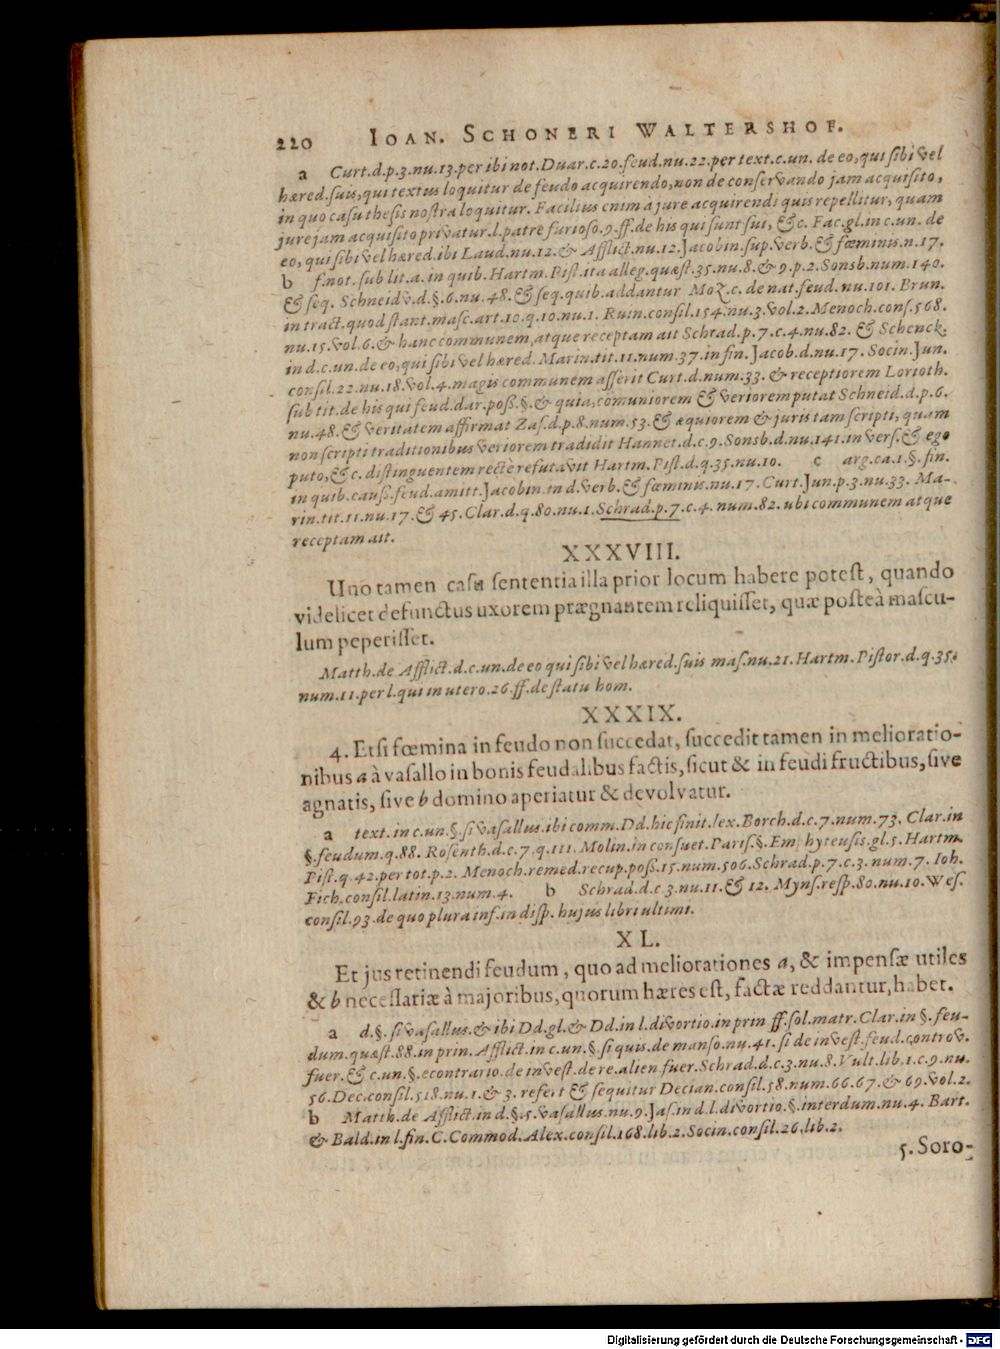 220 IOAN. SCHONERI WALTERSHOF.
a Curt.d.p.3.nu.13.per ibi not.Duar.c.20.feud.nu.22.per text.c.un. de eo,qui sibi vel
hæred.suis,qui textus loquitur de feudo acquirendo,non de conservando jam acquisito,
in quo casu thesis nostra loquitur. Facilius enim à jure acquirendi quis repellitur, quam
jure jam acquisito privatur.l.patre furioso.9.ff.de his qui sunt sui, &c. Fac.gl.in c.un. de
eo, qui sibi vel hæred.ibi Laud.nu.12.& Afflict.nu.12.Jacobin.sup.verb.& fœminis.n.17.
b f.not.sub lit.a.in quib.Hartm.Pist.ita alleg.quæst.35.nu.8.& 9.p.2.Sonsb.num.140.
& seq. Schneidv.d.§.6.nu.48.& seq.quib.addantur Moz.c.de nat.feud.nu.101. Brun.
in tract.quod stant.masc.art.10.q.10.nu.1. Ruin.consil.154.nu.3.vol.2.Menoch.cons.568.
nu.15.vol.6.& hanc communem,atque receptam ait Schrad.p.7.c.4.nu.82. & Schenck.
in d.c.un.de eo,qui sibi vel hæred. Marin.tit.11.num.37.in fin. Jacob.d.nu.17. Socin.Jun.
consil.22.nu.18.vol.4.magis communem asserit Curt.d.num.33. & receptiorem Lorioth.
sub tit.de his qui feud.dar.poß.§.& quia,comuniorem & veriorem putat Schneid.d.p.6.
nu.48.& veritatem affirmat Zas.d.p.8.num.53.& æquiorem & juris tam scripti, quam
non scripti traditionibus veriorem tradidit Hannet.d.c.9.Sonsb.d.nu.141.in vers.& ego
puto,&c.distinguentem recte refutavit Hartm.Pist.d.q.35.nu.10. c arg.ca.1.§.fin.
in quib.cauß.feud.amitt.Jacobin.in d.verb.& fœminis.nu.17.Curt.Jun.p.3.nu.33. Ma-
rin.tit.11.nu.17.& 45.Clar.d.q.80.nu.1.Schrad.p.7.c.4.num.82.ubi communem atque
receptam ait.
XXXVIII.
Uno tamen casu sententia illa prior locum habere potest, quando
videlicet defunctus uxorem prægnantem reliquisset, quæ posteà mascu-
lum peperisset.
Matth.de Afflict.d.c.un.de eo qui sibi vel hæred.suis mas.nu.21.Hartm.Pistor.d.q.35.
num.11.per l.qui in utero.26.ff.de statu hom.
XXXIX.
4. Etsi fœmina in feudo non succedat, succedit tamen in melioratio-
nibus a à vasallo in bonis feudalibus factis, sicut & in feudi fructibus, sive
agnatis, sive b domino aperiatur & devolvatur.
a text.in c.un.§.si vasallus.ibi comm.Dd.hic finit.lex.Borch.d.c.7.num.73. Clar.in
§.feudum.q.88. Rosenth.d.c.7.q.111.Molin.in consuet.Paris.§.Emphyteusis.gl.5.Hartm.
Pist.q.42.per tot.p.2. Menoch.remed.recup.poß.15.num.506.Schrad.p.7.c.3.num.7. Ioh.
Fich.consil.latin.13.num.4. b Schrad.d.c.3.nu.11.& 12. Myns.resp.80.nu.10.Wes.
consil.93.de quo plura inf.in disp. hujus libri ultimi.
XL.
Et jus retinendi feudum, quo ad meliorationes a, & impensæ utiles
& b necessariæ à majoribus, quorum hæres est, factæ reddantur, habet.
a d.§.si vasallus.& ibi Dd.gl.& Dd.in l.divortio.in prin ff.sol.matr.Clar.in §.feu-
dum.quæst.88.in prin.Afflict.in c.un.§.si quis.de manso.nu.41.si de invest.feud.controv.
fuer.& c.un.§.econtrario.de invest.de re.alien fuer.Schrad.d.c.3.nu.8.Vult.lib.1.c.9.nu.
56.Dec.consil.518.nu.1.& 3.refert & sequitur Decian.consil.58.num.66.67.& 69.vol.2.
b Matth.de Afflict.in d.§.5.vasallus.nu.9.Jas.in d.l.divortio.§.interdum.nu.4. Bart.
& Bald.in l.fin.C.Commod.Alex.consil.168.lib.2.Socin.consil.26.lib.2.
5. Soro-
Digitalisierung gefördert durch die Deutsche Forschungsgemeinschaft - DFG